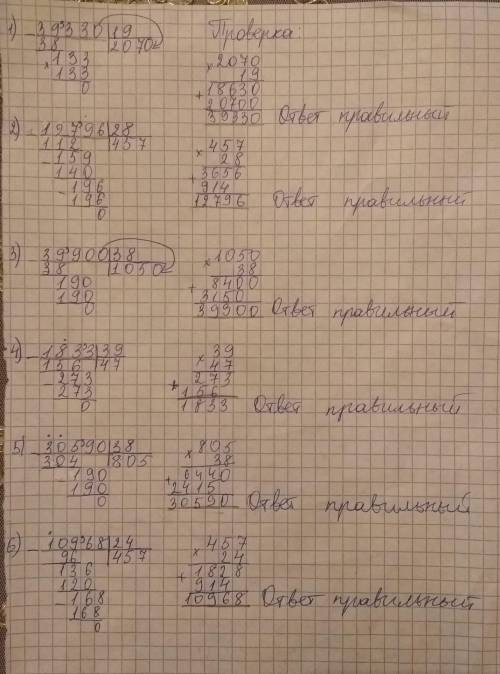 1) 39330 | 19 Проверка:
38 | 2070
133 × 2070
133 19
0 + 18630
20700
39330 Ответ правильный
2) 12796 | 28
112 | 457 × 457
159 28
140 + 3656
196 914
196 12796 Ответ правильный
0
3) 39900 | 38 × 1050
38 | 1050 38
190 + 8400
190 3150
0 39900 Ответ правильный
4) 1833 | 39 × 39
156 | 47 47
273 + 273
273 156
0 1833 Ответ правильный
5) 30590 | 38 × 805
304 | 805 38
190 + 6440
190 2415
0 30590 Ответ правильный
6) 10968 | 24 × 457
96 | 457 24
136 + 1828
120 914
168 10968 Ответ правильный
168
0